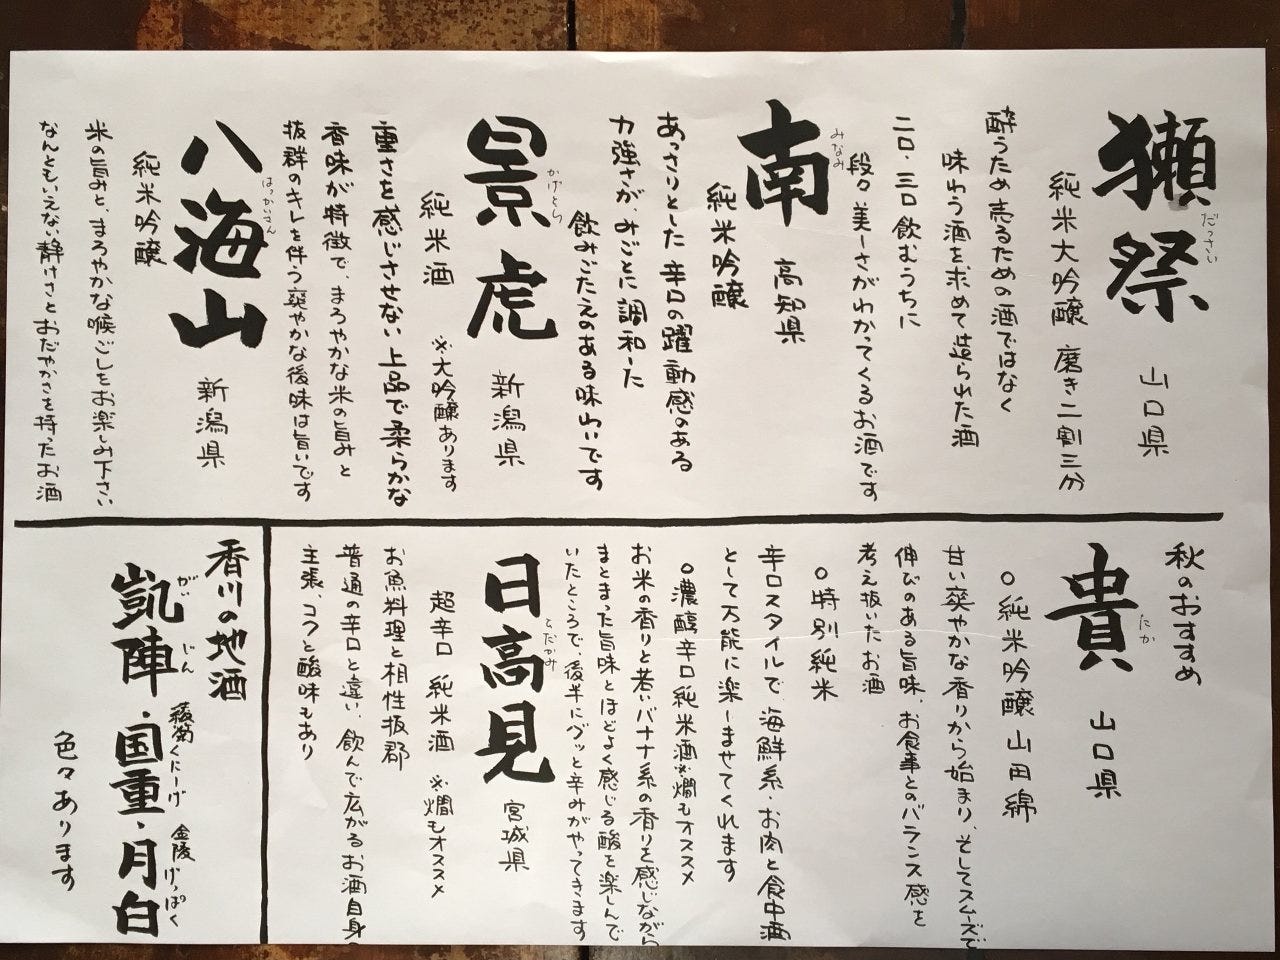 獺祭 山口県
だっさい
純米大吟醸 磨き二割三分
酔うため売るための酒ではなく
味わう酒を求めて造られた酒
南 高知県
みなみ
純米吟醸
二口、三口飲むうちに
段々美しさがわかってくるお酒です
あっさりとした辛口の躍動感のある
力強さが、みごとに調和した
飲みごたえのある味わいです
景虎 新潟県
かげとら
純米酒 ※大吟醸あります
重さを感じさせない上品で柔らかな
香味が特徴で、まろやかな米の旨みと
抜群のキレを伴う爽やかな後味は旨いです
八海山 新潟県
はっかいさん
純米吟醸
米の旨みと、まろやかな喉ごしをお楽しみ下さい
なんともいえない静けさとおだやかさを持ったお酒
秋のおすすめ
貴 山口県
たか
○純米吟醸 山田綿
甘い爽やかな香りから始まり、そしてスムーズで
伸びのある旨味、お食事とのバランス感を
考え抜いたお酒
○特別純米
辛口スタイルで、海鮮系・お肉と食中酒
として万能に楽しませてくれます
○濃醇辛口純米酒※燗もオススメ
お米の香りと若いバナナ系の香りを感じながら
まとまった旨味とほどよく感じる酸を楽しんで
いたところで、後半にグッと辛みがやってきます
日高見 宮城県
ひたかみ
超辛口 純米酒 ※燗もオススメ
お魚料理と相性抜郡
普通の辛口と違い、飲んで広がるお酒自身の
主張、コクと酸味もあり
香川の地酒
凱陣・国重・月白
がいじん 綾菊くにしげ 金陵げっぱく
色々あります